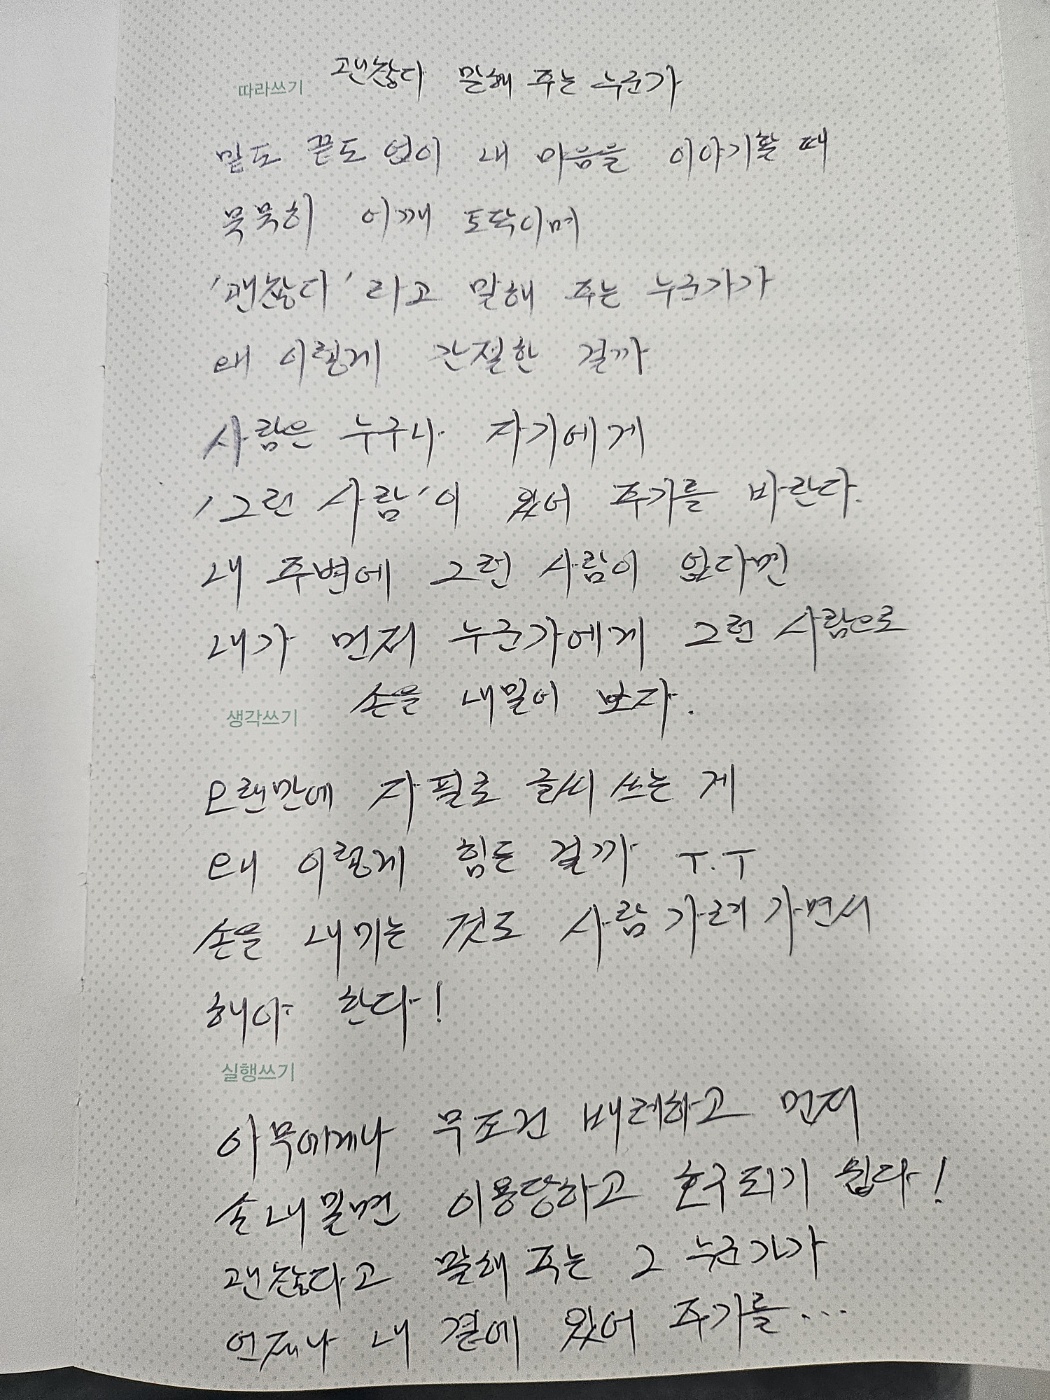 괜찮다 말해 주는 누군가
따라쓰기
밑도 끝도 없이 내 마음을 이야기할 때
묵묵히 어깨 토닥이며
'괜찮다' 라고 말해 주는 누군가가
왜 이렇게 간절한 걸까
사람은 누구나 자기에게
'그런 사람'이 있어 주기를 바란다.
내 주변에 그런 사람이 없다면
내가 먼저 누군가에게 그런 사람으로
손을 내밀어 보자.
생각쓰기
오랜만에 자필로 글씨 쓰는 게
왜 이렇게 힘든 걸까 ㅜ.ㅜ
손을 내미는 것도 사람 가려 가면서
해야 한다!
실행쓰기
아무에게나 무조건 배려하고 먼저
손 내밀면 이용당하고 호구되기 쉽다!
괜찮다고 말해 주는 그 누군가가
언제나 내 곁에 있어 주기를...